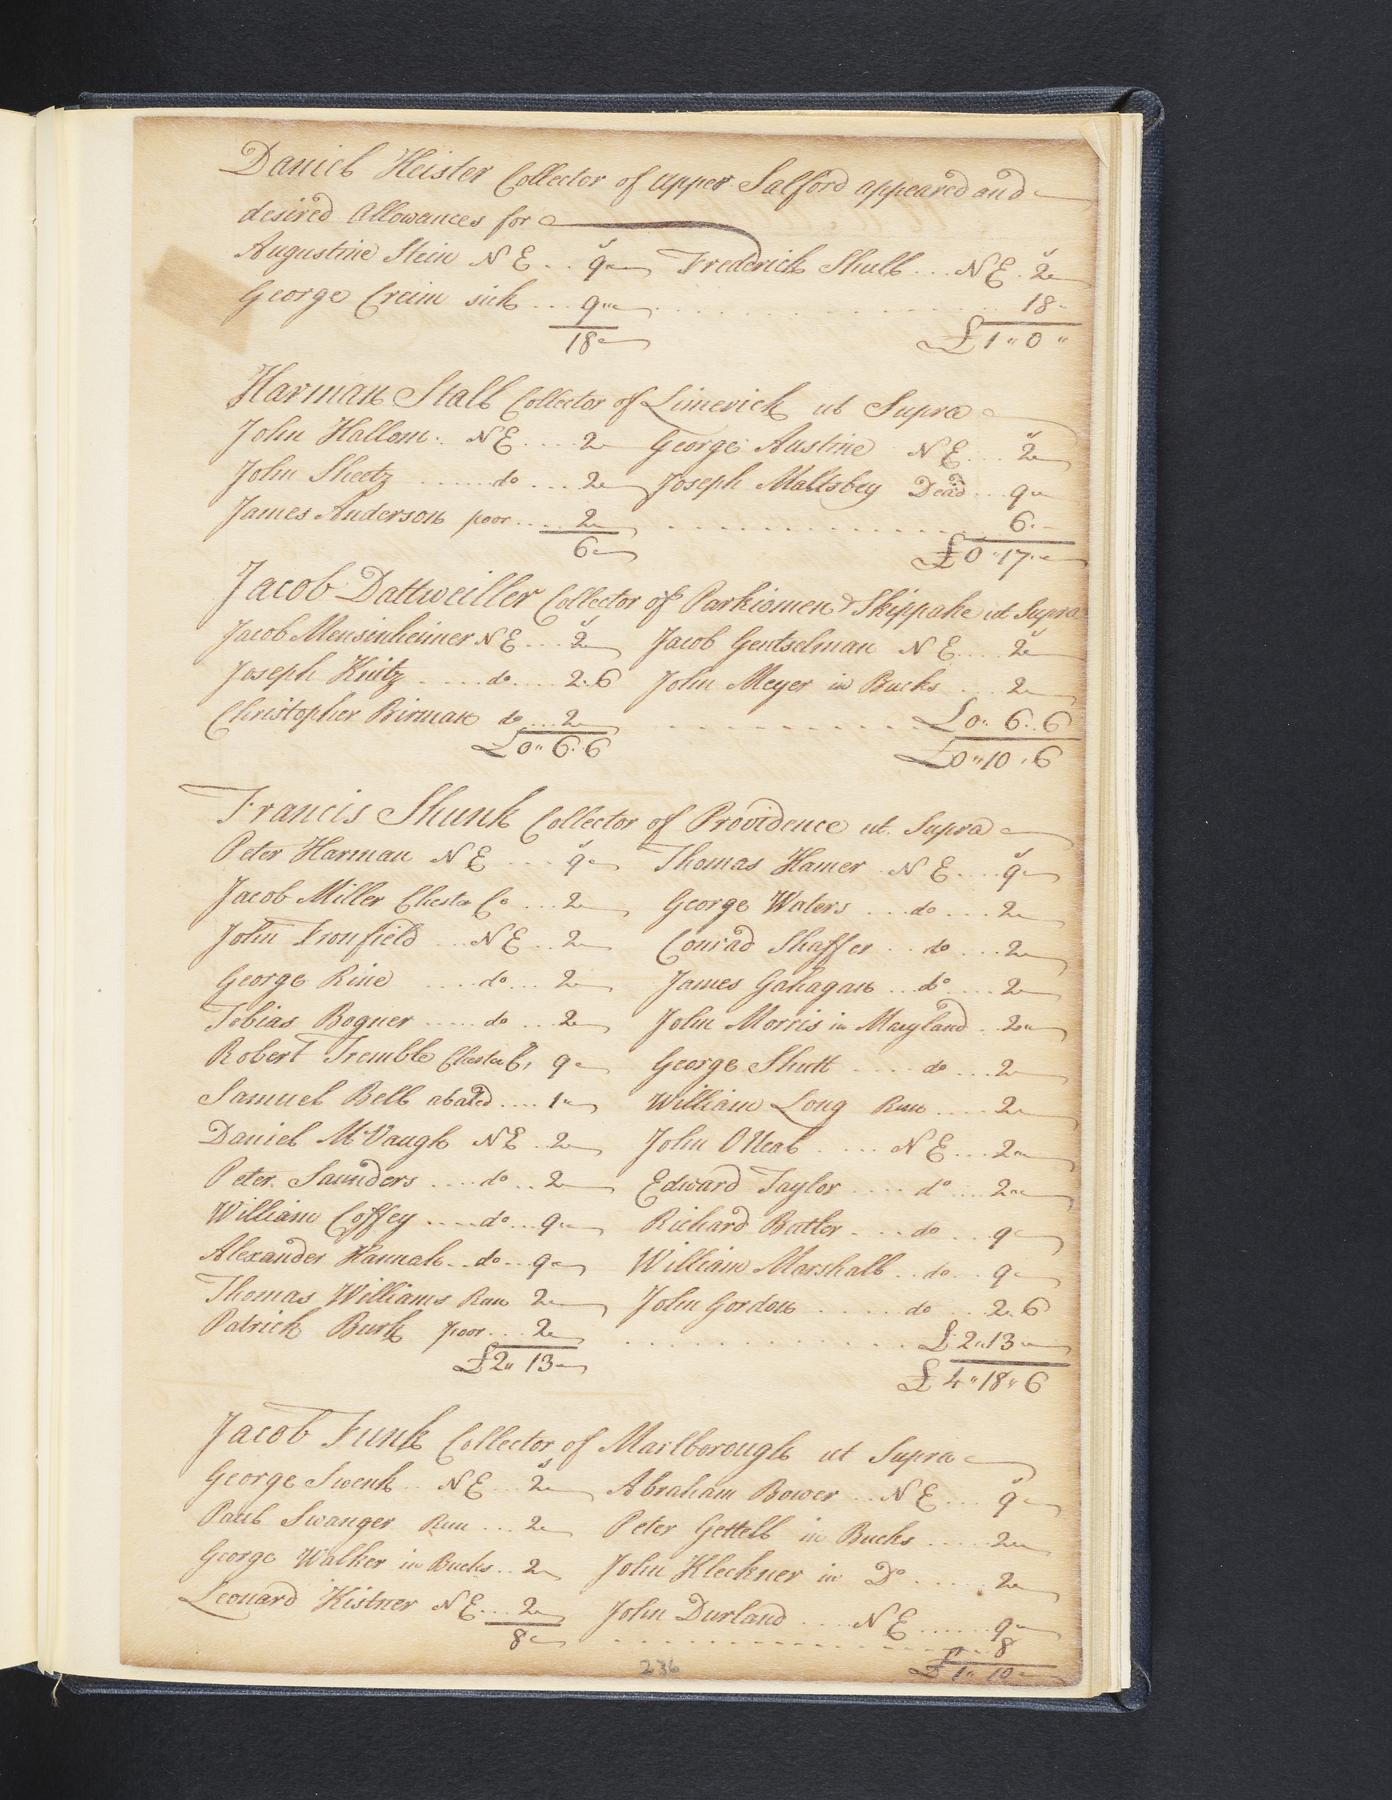 Daniel Heister Collector of upper Salford appeared and
desired Allowances for
Augustine Stein N E .. 9 Frederick Shull ... N E . 2
George Creim sick ... 9 18
18 £1 " 0 "
Harman Stall Collector of Limerick ut Supra
John Hallom . N E .... 2 George Austine N E ... 2
John Sheetz ...... do ... 2 Joseph Maltsbey Dead .. 9
James Anderson poor .... 2 6
6 £0 " 17
Jacob Dattweiller Collector of Parkiomen & Skippake ut Supra
Jacob Mensinheimer N E ... 2 Jacob Gentselman N E ... 2
Joseph Knitz .... do .... 2.6 John Meyer in Bucks ... 2
Christopher Birman do ... 2 £0 " 6 . 6
£0 " 6 . 6 £0 " 10 . 6
Francis Shunk Collector of Providence ut Supra
Peter Harman N E ... 9 Thomas Hamer N E ... 9
Jacob Miller Chester Co ... 2 George Waters ... do ... 2
John Fronfield ... N E .. 2 Conrad Shaffer .. do ... 2
George Rine .... do .. 2 James Gahagan .. do .... 2
Tobias Bogner ..... do ... 2 John Morris in Maryland .. 2
Robert Tremble Chester Co, 9 George Shutt .... do ... 2
Samuel Bell abated .... 1 William Long Run .... 2
Daniel McVaugh N E .. 2 John ONeal .... N E ... 2
Peter Saunders .... do .. 2 Edward Taylor .... do ... 2
William Coffey .... do .. 9 Richard Butler .... do ... 9
Alexander Hannah .. do .. 9 William Marshall .. do .. 9
Thomas Williams Run 2 John Gordon ..... do ... 2.6
Patrick Burk poor ... 2 £2 " 13
£2 " 13 £4 " 18 " 6
Jacob Funk Collector of Marlborough ut Supra
George Swenk .. N E ... 2 Abraham Bower .. N E ... 9
Paul Swanger Run ... 2 Peter Gettell in Bucks ..... 2
George Walker in Bucks .. 2 John Kleckner in Do ...... 2
Leonard Kistner N E ... 2 John Durland .... N E ...... 9
8 8
£1 " 10
236